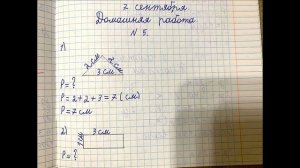 7 сентября
Домашняя работа
N 5.
1)
2 см 2 см
3 см
P=?
P=2+2+3=7(см)
P=7см
2) 3 см
P=?